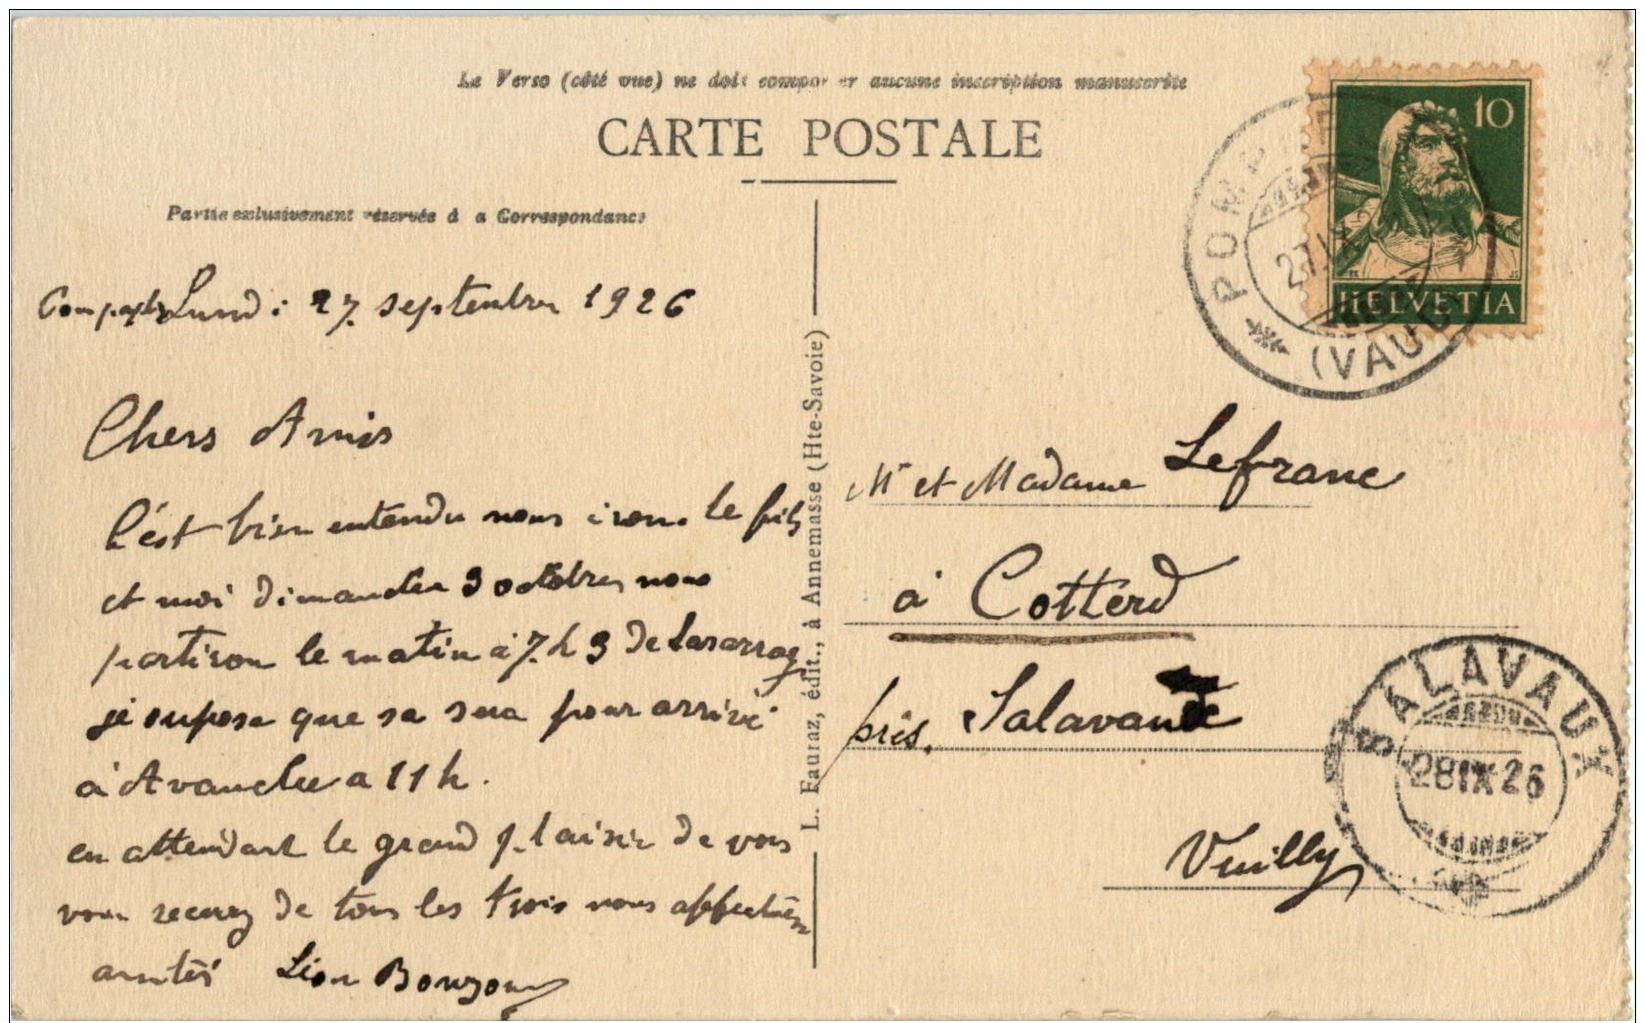 Le Verso (côté vue) ne doit comporter aucune inscription manuscrite
CARTE POSTALE
Partie exlusivement réservée à a Correspondance
Lundi 27 septembre 1926
Chers Amis
C'est bien entendu nous irons le fils
et moi dimanche 3 octobre nous
partiron le matin à 7 h 3 de Lasarraz
je supose que sa sera pour arrivé
à Avanche a 11 h.
en attendant le grand plaisir de vous
voir recevez de tous les trois nous affectueuse
amitiés Léon Bouzon
L. Fauraz, édit., à Annemasse (Hte-Savoie)
10
HELVETIA
POMPAPLES
27 IX 26
(VAUD)
Mr et Madame Lefranc
à Cotterd
près. Salavaux
Vuilly
SALAVAUX
28 IX 26